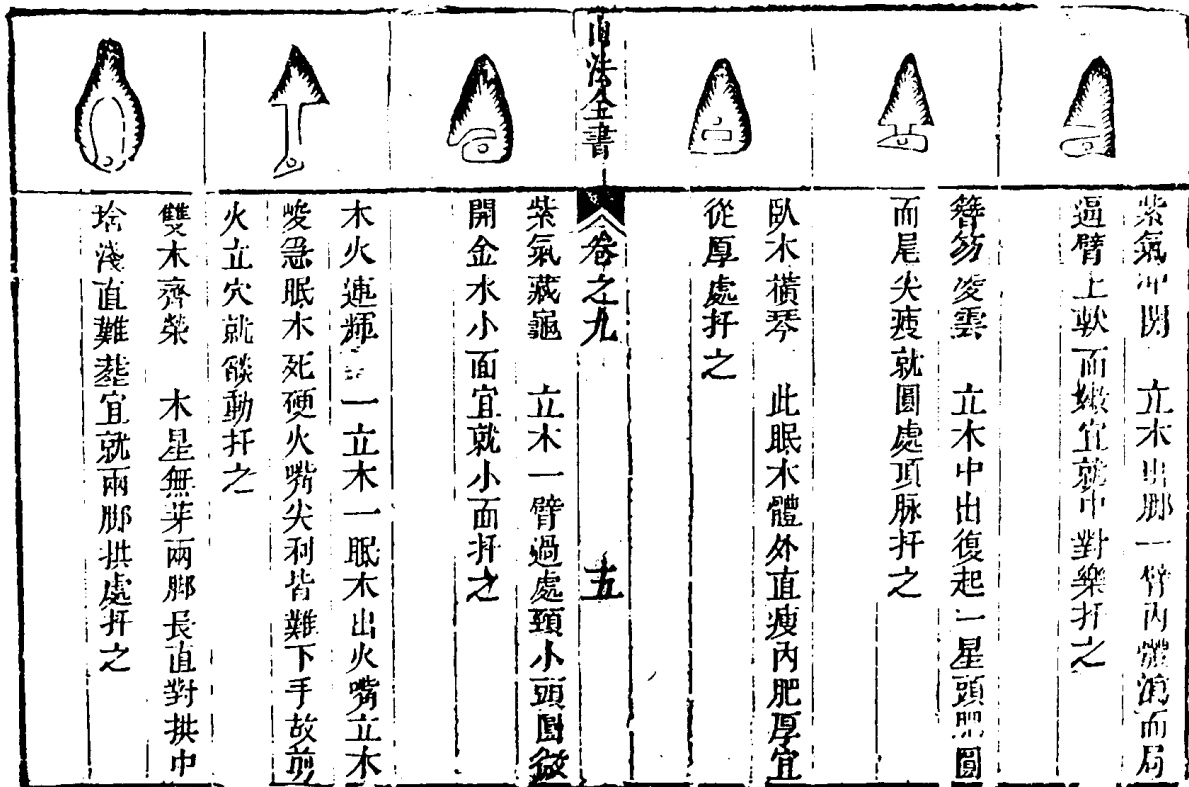 紫氣冲開　立木出脚一臂內體瀉而局
逼臂上軟而嫩宜就中對樂扦之
簪笏凌雲　立木中出復起一星頭肥圓
而尾尖疲就圓處頂脉扦之
臥木橫琴　此眠木體外直瘦內肥厚宜
從厚處扦之
山法全書
卷之九
十五
紫氣藏龜　立木一臂過處頸小頭圓微
開金水小面宜就小面扦之
木火連輝　一立木一眠木出火嘴立木
峻急眠木死硬火嘴尖利皆難下手故剪
火立穴就餤動扦之
雙木齊榮　木星無芽兩脚長直對拱中
埳淺直難塟宜就兩脚拱處扦之